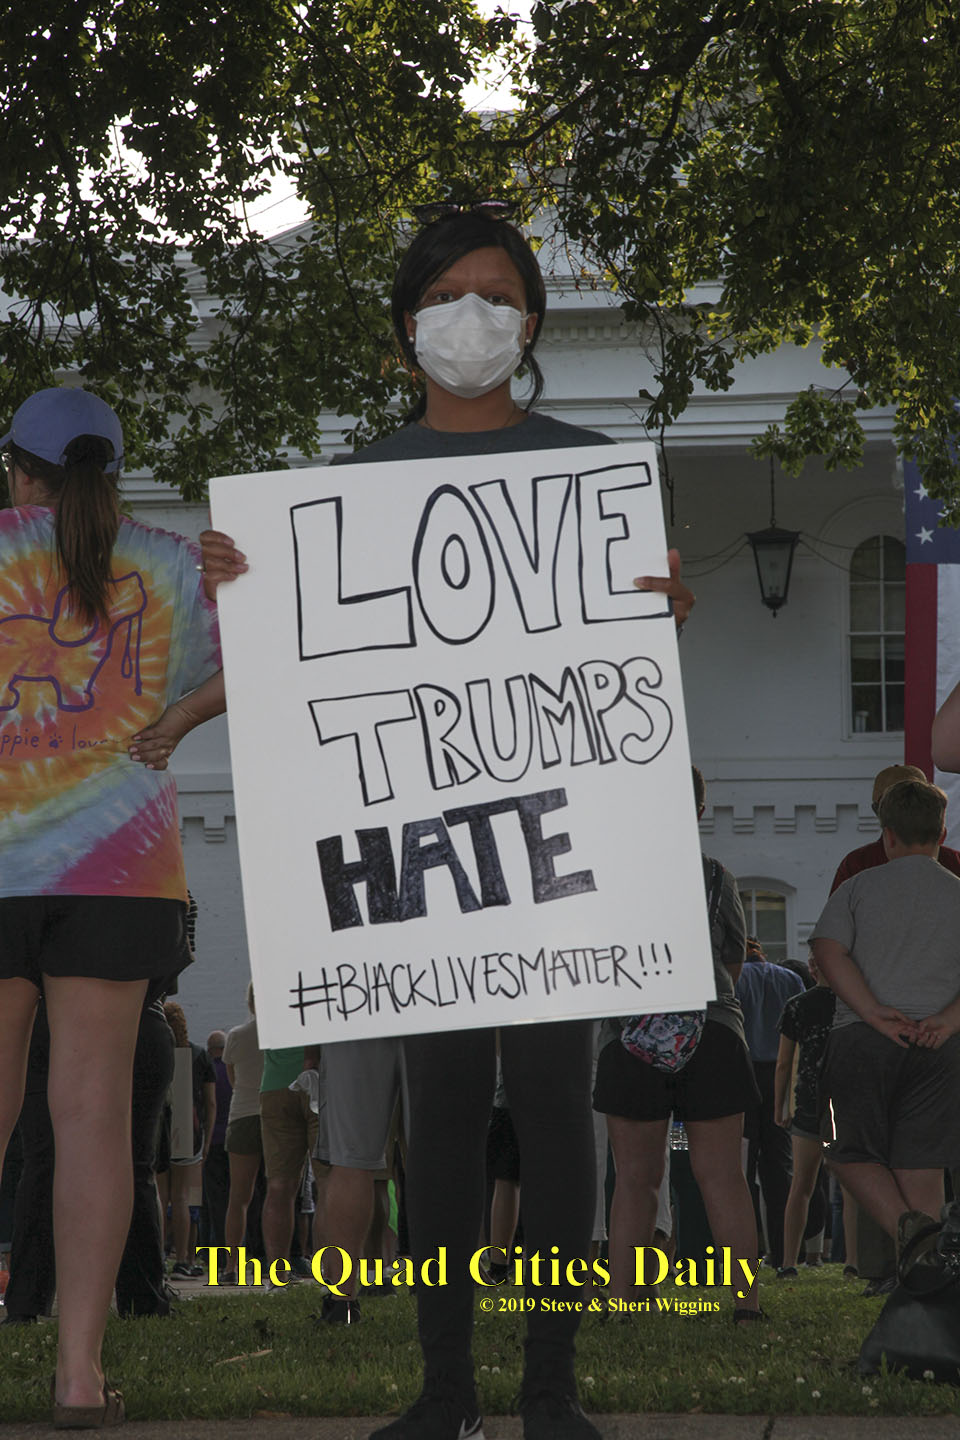 LOVE
TRUMPS
HATE
#BLACKLIVESMATTER!!!
The Quad Cities Daily
© 2019 Steve & Sheri Wiggins